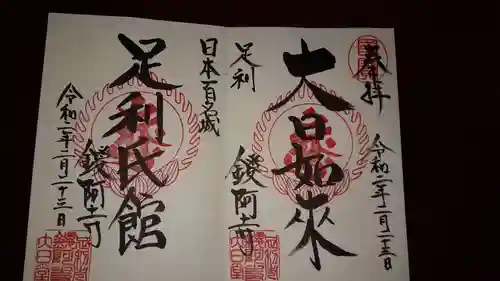 奉拝
大日如来
足利
鑁阿寺
令和二年二月二十三日
日本一百名城
足利氏館
鑁阿寺
令和二年二月二十三日